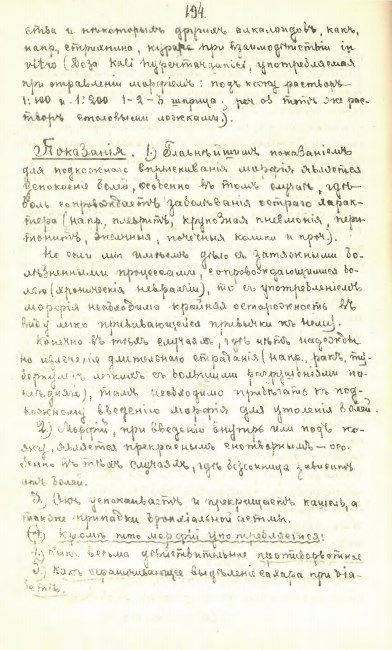 194.
ства и нѣкоторымъ другимъ алкалоидовъ, какъ,
напр. стрихнина, кураре при взаимодѣйствіи in
vitro (Доза Kali hypermanganici, употребляемая
при отравленіи морфіемъ: подъ кожу растворъ
1:100 и 1:200 1-2-3 шприца; per os тотъ же рас-
творъ столовыми ложками).
Показанія. 1) Главнѣйшимъ показаніемъ
для подкожнаго впрыскиванія морфія является
успокоеніе болей, особенно въ томъ случаѣ, гдѣ
боль сопровождаетъ заболѣванія остраго харак-
тера (напр. плевритъ, крупозная пневмонія, пери-
тонитъ, желчныя, почечныя колики и проч.).
Но если мы имѣемъ дѣло съ затяжными бо-
лѣзненными процессами, сопровождающимися бо-
лью (хроническія невралгіи), то съ употребленіемъ
морфія необходима крайняя осторожность въ
виду легко прививающейся привычки къ нему.
Конечно въ тѣхъ случаяхъ, гдѣ нѣтъ надежды
на излеченія длительнаго страданія (напр. ракъ, ту-
беркулезъ легкихъ съ большими разрушеніями по-
слѣдняго), тамъ необходимо прибѣгать къ под-
кожному введенію морфія для утоленія болей.
2) Морфій, при введеніи внутрь или подъ ко-
жу, является прекраснымъ снотворнымъ — осо-
бенно въ тѣхъ случаяхъ, гдѣ безсонница зависитъ
отъ болей.
3) Онъ успокаиваетъ и прекращаетъ кашель, а
также припадки бронхіальной астмы.
(4) Кромѣ того морфій употребляется:
4) Какъ весьма дѣйствительное противорвотное
5) Какъ ограничивающее выдѣленіе сахара при діа-
бетѣ.